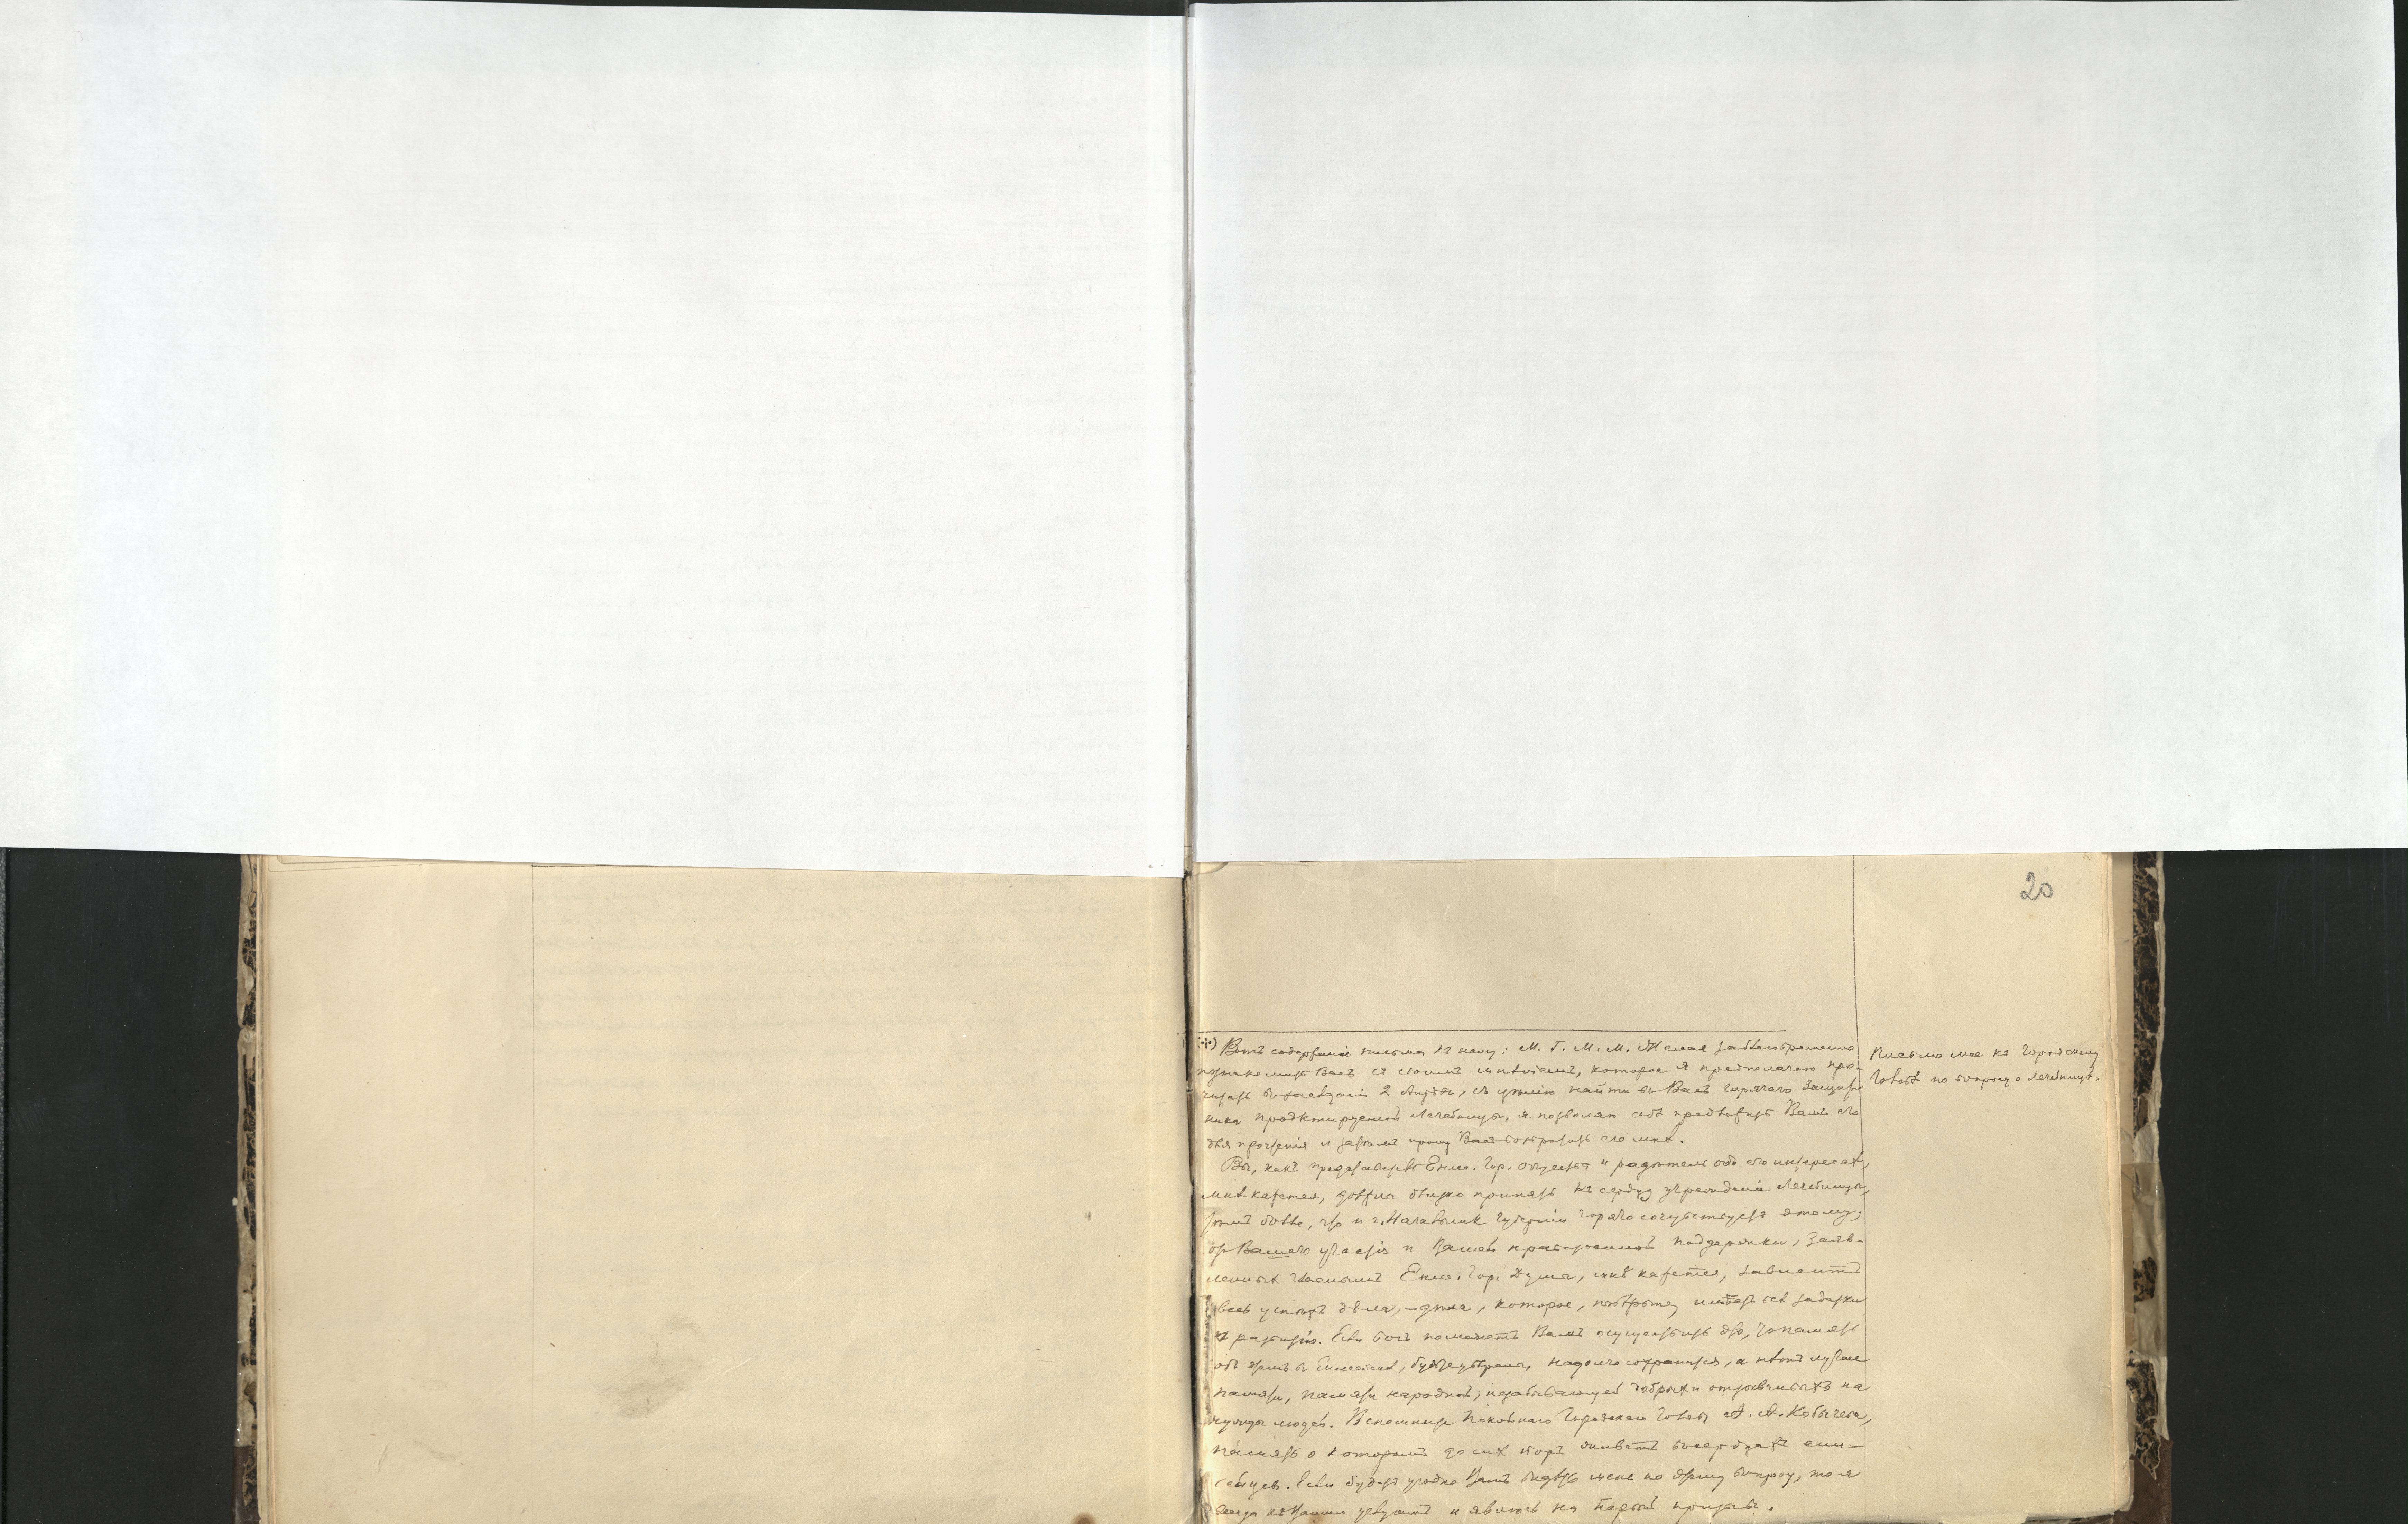 20
(+) Вотъ содержаніе письма къ нему: М. Г. М. М. Желая заблаговременно
познакомить Васъ съ своимъ мнѣніемъ, которое я предполагаю про-
читать въ засѣданіи 2 Января, съ цѣлію найти въ Васъ горячаго защит-
ника проэктируемой Лечебницы, я позволяю себѣ представить Вамъ его
для прочтенія и затѣмъ прошу Васъ возвратить его мнѣ.
Вы, какъ представитель Енис. Гор. общества и радѣтель объ его интересахъ,
мнѣ кажется, должны близко принять къ сердцу учрежденіе Лечебницы,
тѣмъ болѣе, что и г. Начальник губерніи горячо сочувствуетъ этому;
отъ Вашего участія и Вашей нравственной поддержки, заяв-
ленных гласнымъ Енис. Гор. Думы, мнѣ кажется, зависитъ
весь успѣхъ дѣла, – дѣла, которое, повторяю, имѣетъ всѣ задатки
къ развитію. Если Богъ поможетъ Вамъ осуществить это, то память
объ этомъ въ Енисейскѣ, будьте увѣрены, надолго сохранится, а нѣтъ лучше
памяти, памяти народной, незабывающей добрых и отзывчивыхъ на
нужды людей. Вспомните покойнаго Городскаго Голову А. А. Кобычева,
память о которомъ до сих поръ живетъ въ сердцахъ ени-
сейцев. Если будетъ угодно Вамъ видѣть меня по этому вопросу, то я
всегда къ Вашимъ услугамъ и явлюсь на первый призывъ.
Письмо мое къ Городскому
Головѣ по вопросу о лечебницѣ.